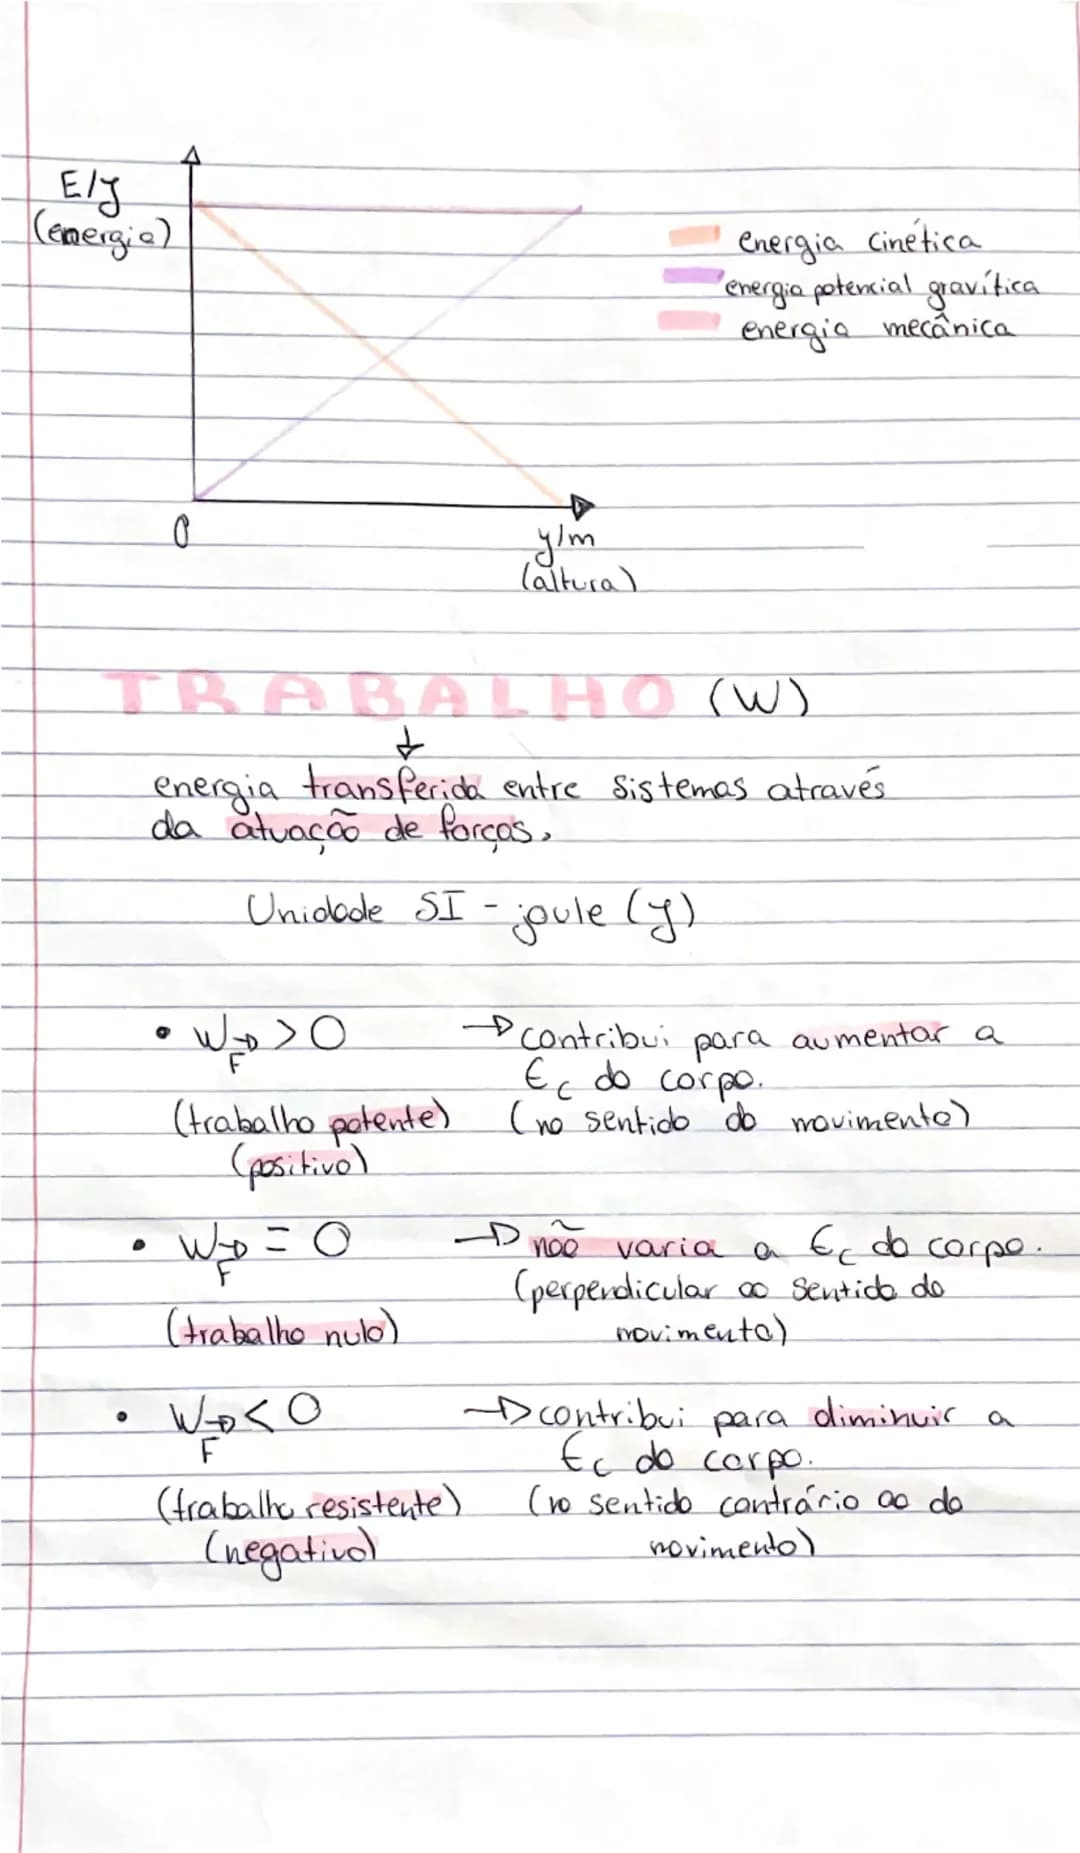 E/J
(energia)
energia cinética
energia potencial gravítica
energia mecânica
0
y/m
(altura)
TRABALHO (W)
↓
energia transferida entre sistemas através
da atuação de forças.
Unidade SI - joule (J)
• W→F > 0 → contribui para aumentar a
Ec do corpo.
(trabalho potente) (no sentido do movimento)
(positivo)
• W→F = 0 → não varia a Ec do corpo.
(perpendicular ao sentido do
(trabalho nulo) movimento)
• W→F < 0 → contribui para diminuir a
Ec do corpo.
(trabalho resistente) (no sentido contrário ao do
(negativo) movimento)